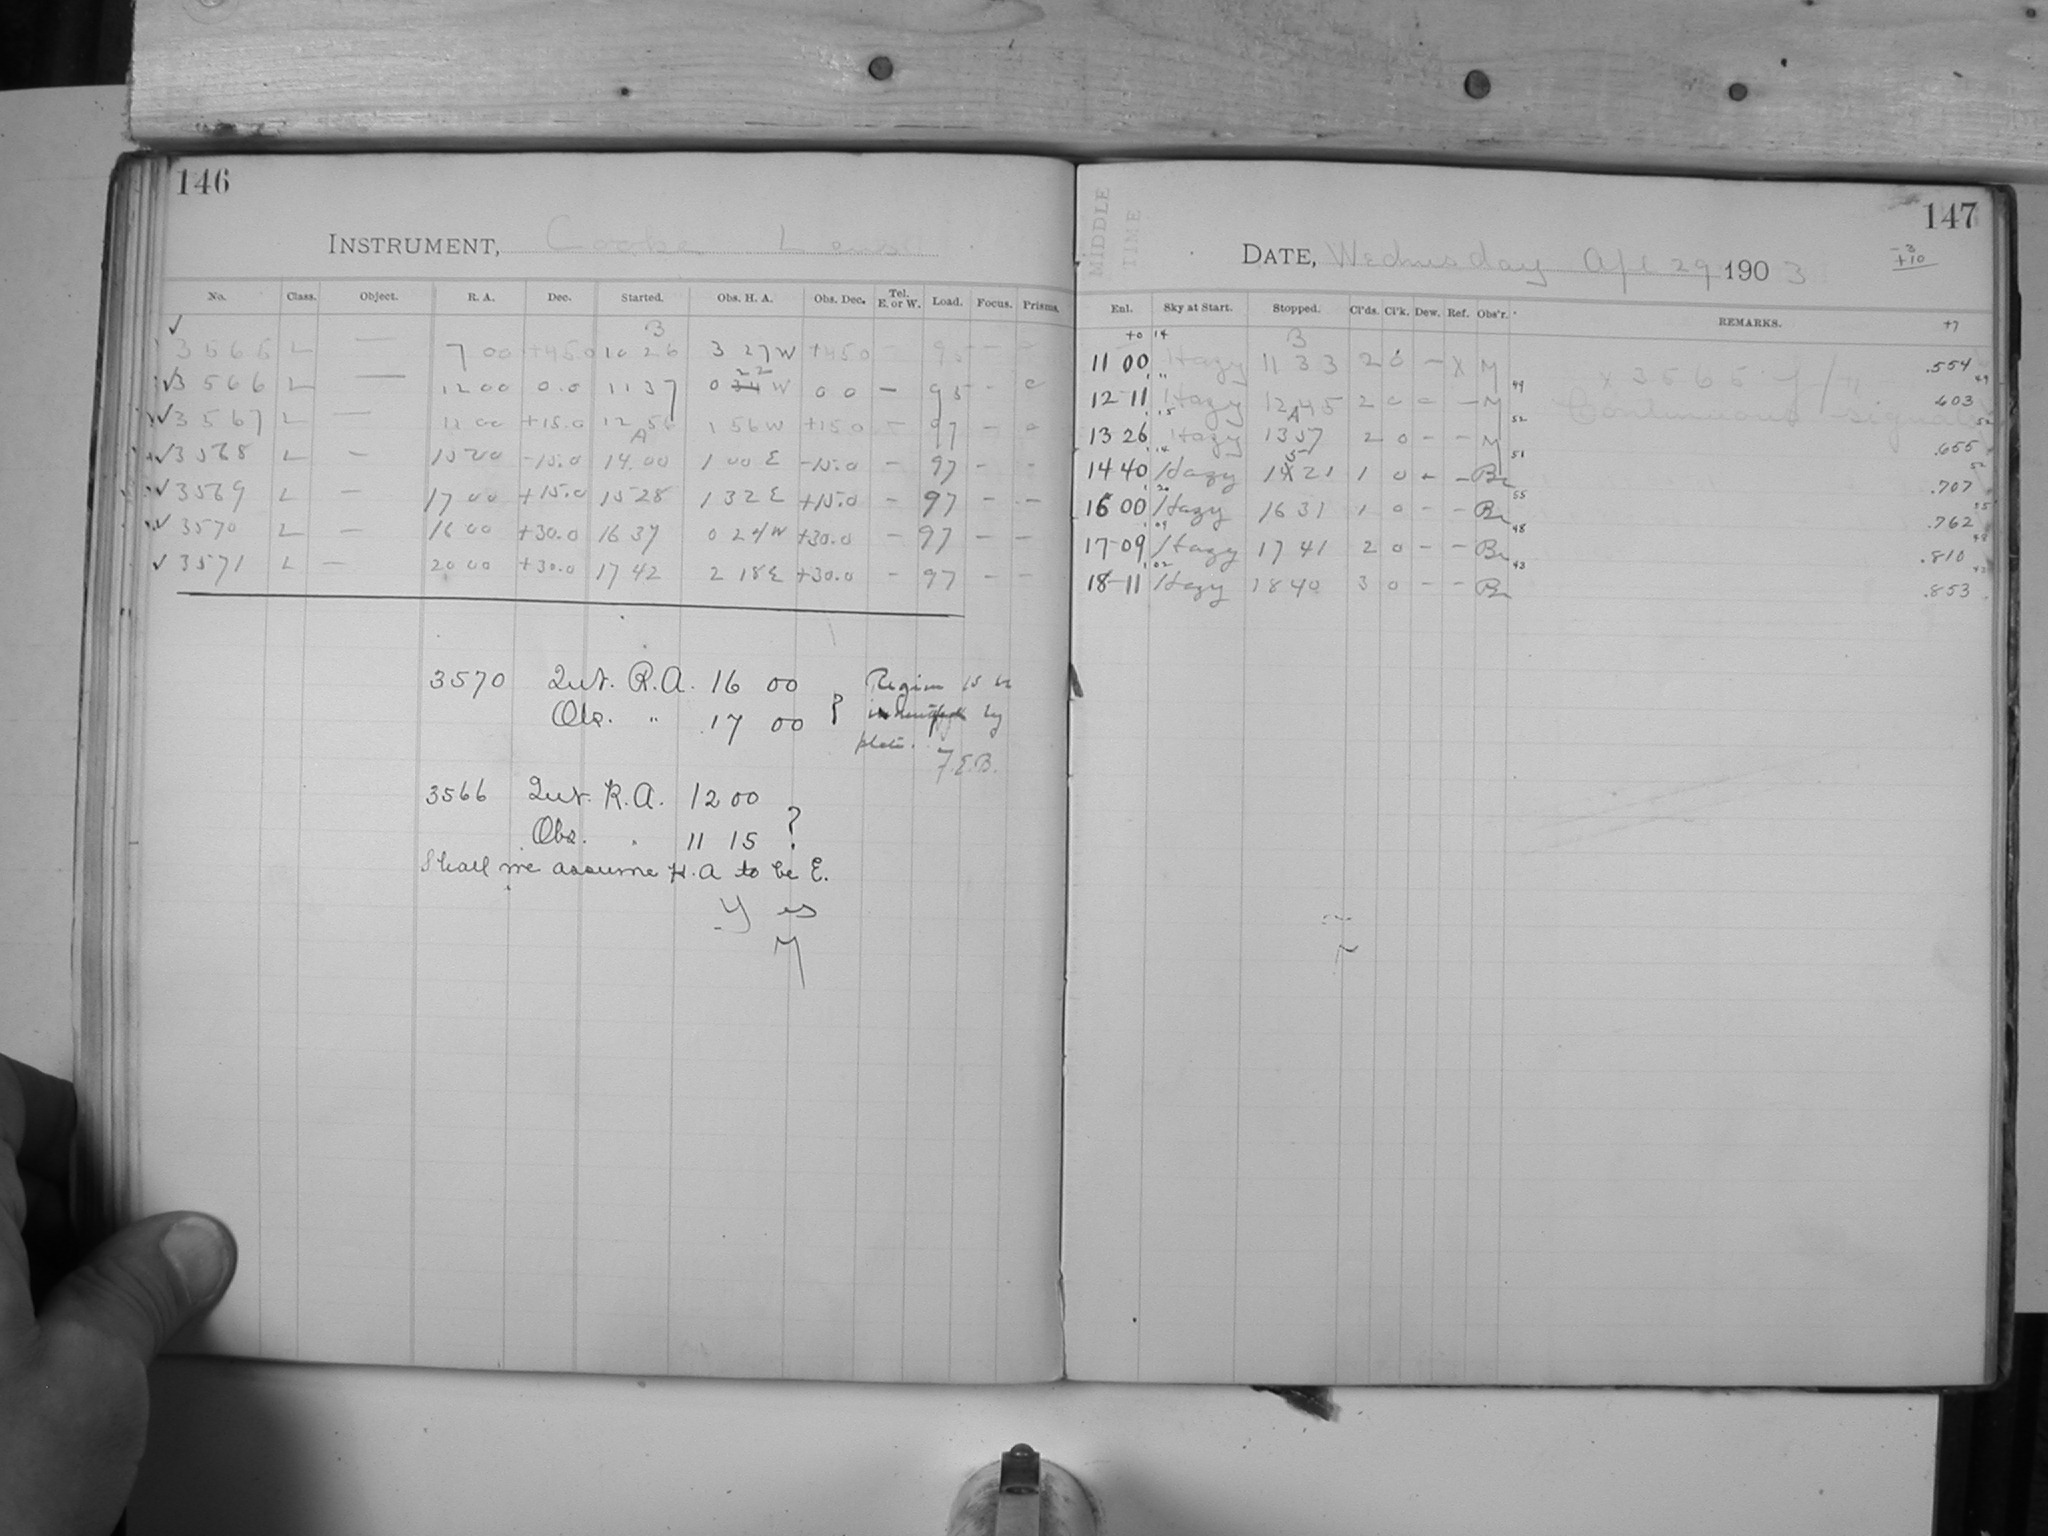 146
INSTRUMENT, Cooke Lens
No. Class. Object. R. A. Dec. Started. Obs. H. A. Obs. Dec. Tel. E. or W. Load. Focus. Prisms.
B
✓ 3565 L — 7 00 +45.0 10 26 3 27 W +45.0 — 95 — —
22
✓ 3566 L — 12 00 0.0 11 37 0 34 W 0 0 — 95 — 0
✓ 3567 L — 12 00 +15.0 12 56 1 56 W +15.0 — 97 — —
A
✓ 3568 L — 15 00 -15.0 14.00 1 00 E -15.0 — 97 — —
✓ 3569 L — 17 00 +15.0 15 28 1 32 E +15.0 — 97 — —
✓ 3570 L — 16 00 +30.0 16 37 0 24 W +30.0 — 97 — —
✓ 3571 L — 20 00 +30.0 17 42 2 18 E +30.0 — 97 — —
3570 Int. R.A. 16 00
Obs. " 17 00 ?
Region is to
by
plate.
F.E.B.
3566 Int. R.A. 12 00
Obs. " 11 15 ?
Shall we assume H.A to be E.
Yes
M
147
MIDDLE TIME
DATE, Wednesday Apl 29 1903
-3
+10
Enl. Sky at Start. Stopped. Cl'ds. Cl'k. Dew. Ref. Obs'r. REMARKS.
+0 14 B +7
11 00 Hazy 11 33 2 0 — X M x 3565 .554
49 49
12-11 Hazy 12 45 2 0 0 — M Continuous signal .603
15 A 52 52
13 26 Hazy 13 57 2 0 — — M .655
14 5 51 52
14 40 Hazy 14 21 1 0 — — Br .707
20 55 55
16 00 Hazy 16 31 1 0 — — Br .762
09 48 48
17-09 Hazy 17 41 2 0 — — Br .810
02 43 43
18-11 Hazy 18 40 3 0 — — Br .853